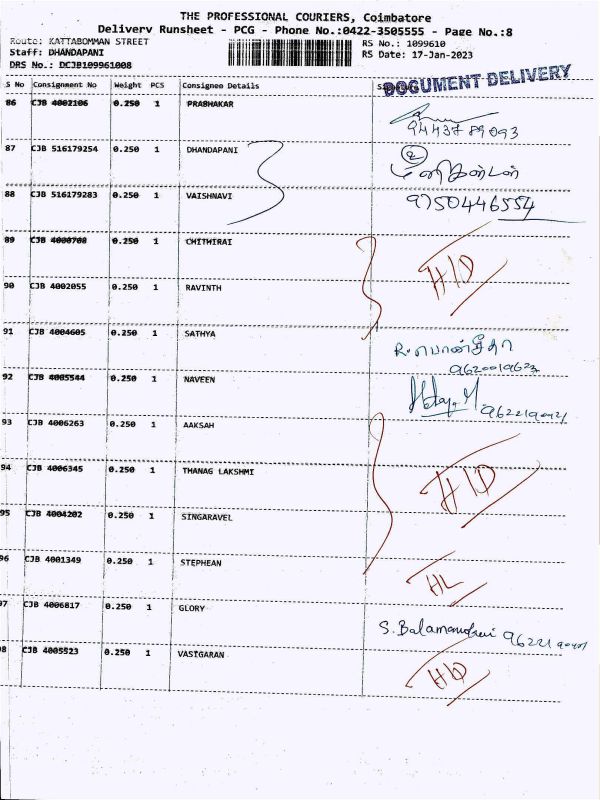 THE PROFESSIONAL COURIERS, Coimbatore
Delivery Runsheet - PCG - Phone No.:0422-3505555 - Page No.:8
Route: KATTABOMMAN STREET
RS No.: 1099610
Staff: DHANDAPANI
RS Date: 17-Jan-2023
DRS No.: DCJB109961008
DOCUMENT DELIVERY
S No Consignment No Weight PCS Consignee Details
86 CJB 4002106 0.250 1 PRABHAKAR
9443789093
87 CJB 516179254 0.250 1 DHANDAPANI
2
மணிகண்டன்
88 CJB 516179283 0.250 1 VAISHNAVI 9750446554
89 CJB 4000708 0.250 1 CHITHIRAI
H/D
90 CJB 4002055 0.250 1 RAVINTH
91 CJB 4004605 0.250 1 SATHYA
92 CJB 4005544 0.250 1 NAVEEN
93 CJB 4006263 0.250 1 AAKSAH
94 CJB 4006345 0.250 1 THANAG LAKSHMI
H/D
95 CJB 4004202 0.250 1 SINGARAVEL
96 CJB 4001349 0.250 1 STEPHEAN
HL
97 CJB 4006817 0.250 1 GLORY
98 CJB 4005523 0.250 1 VASIGARAN
H/D